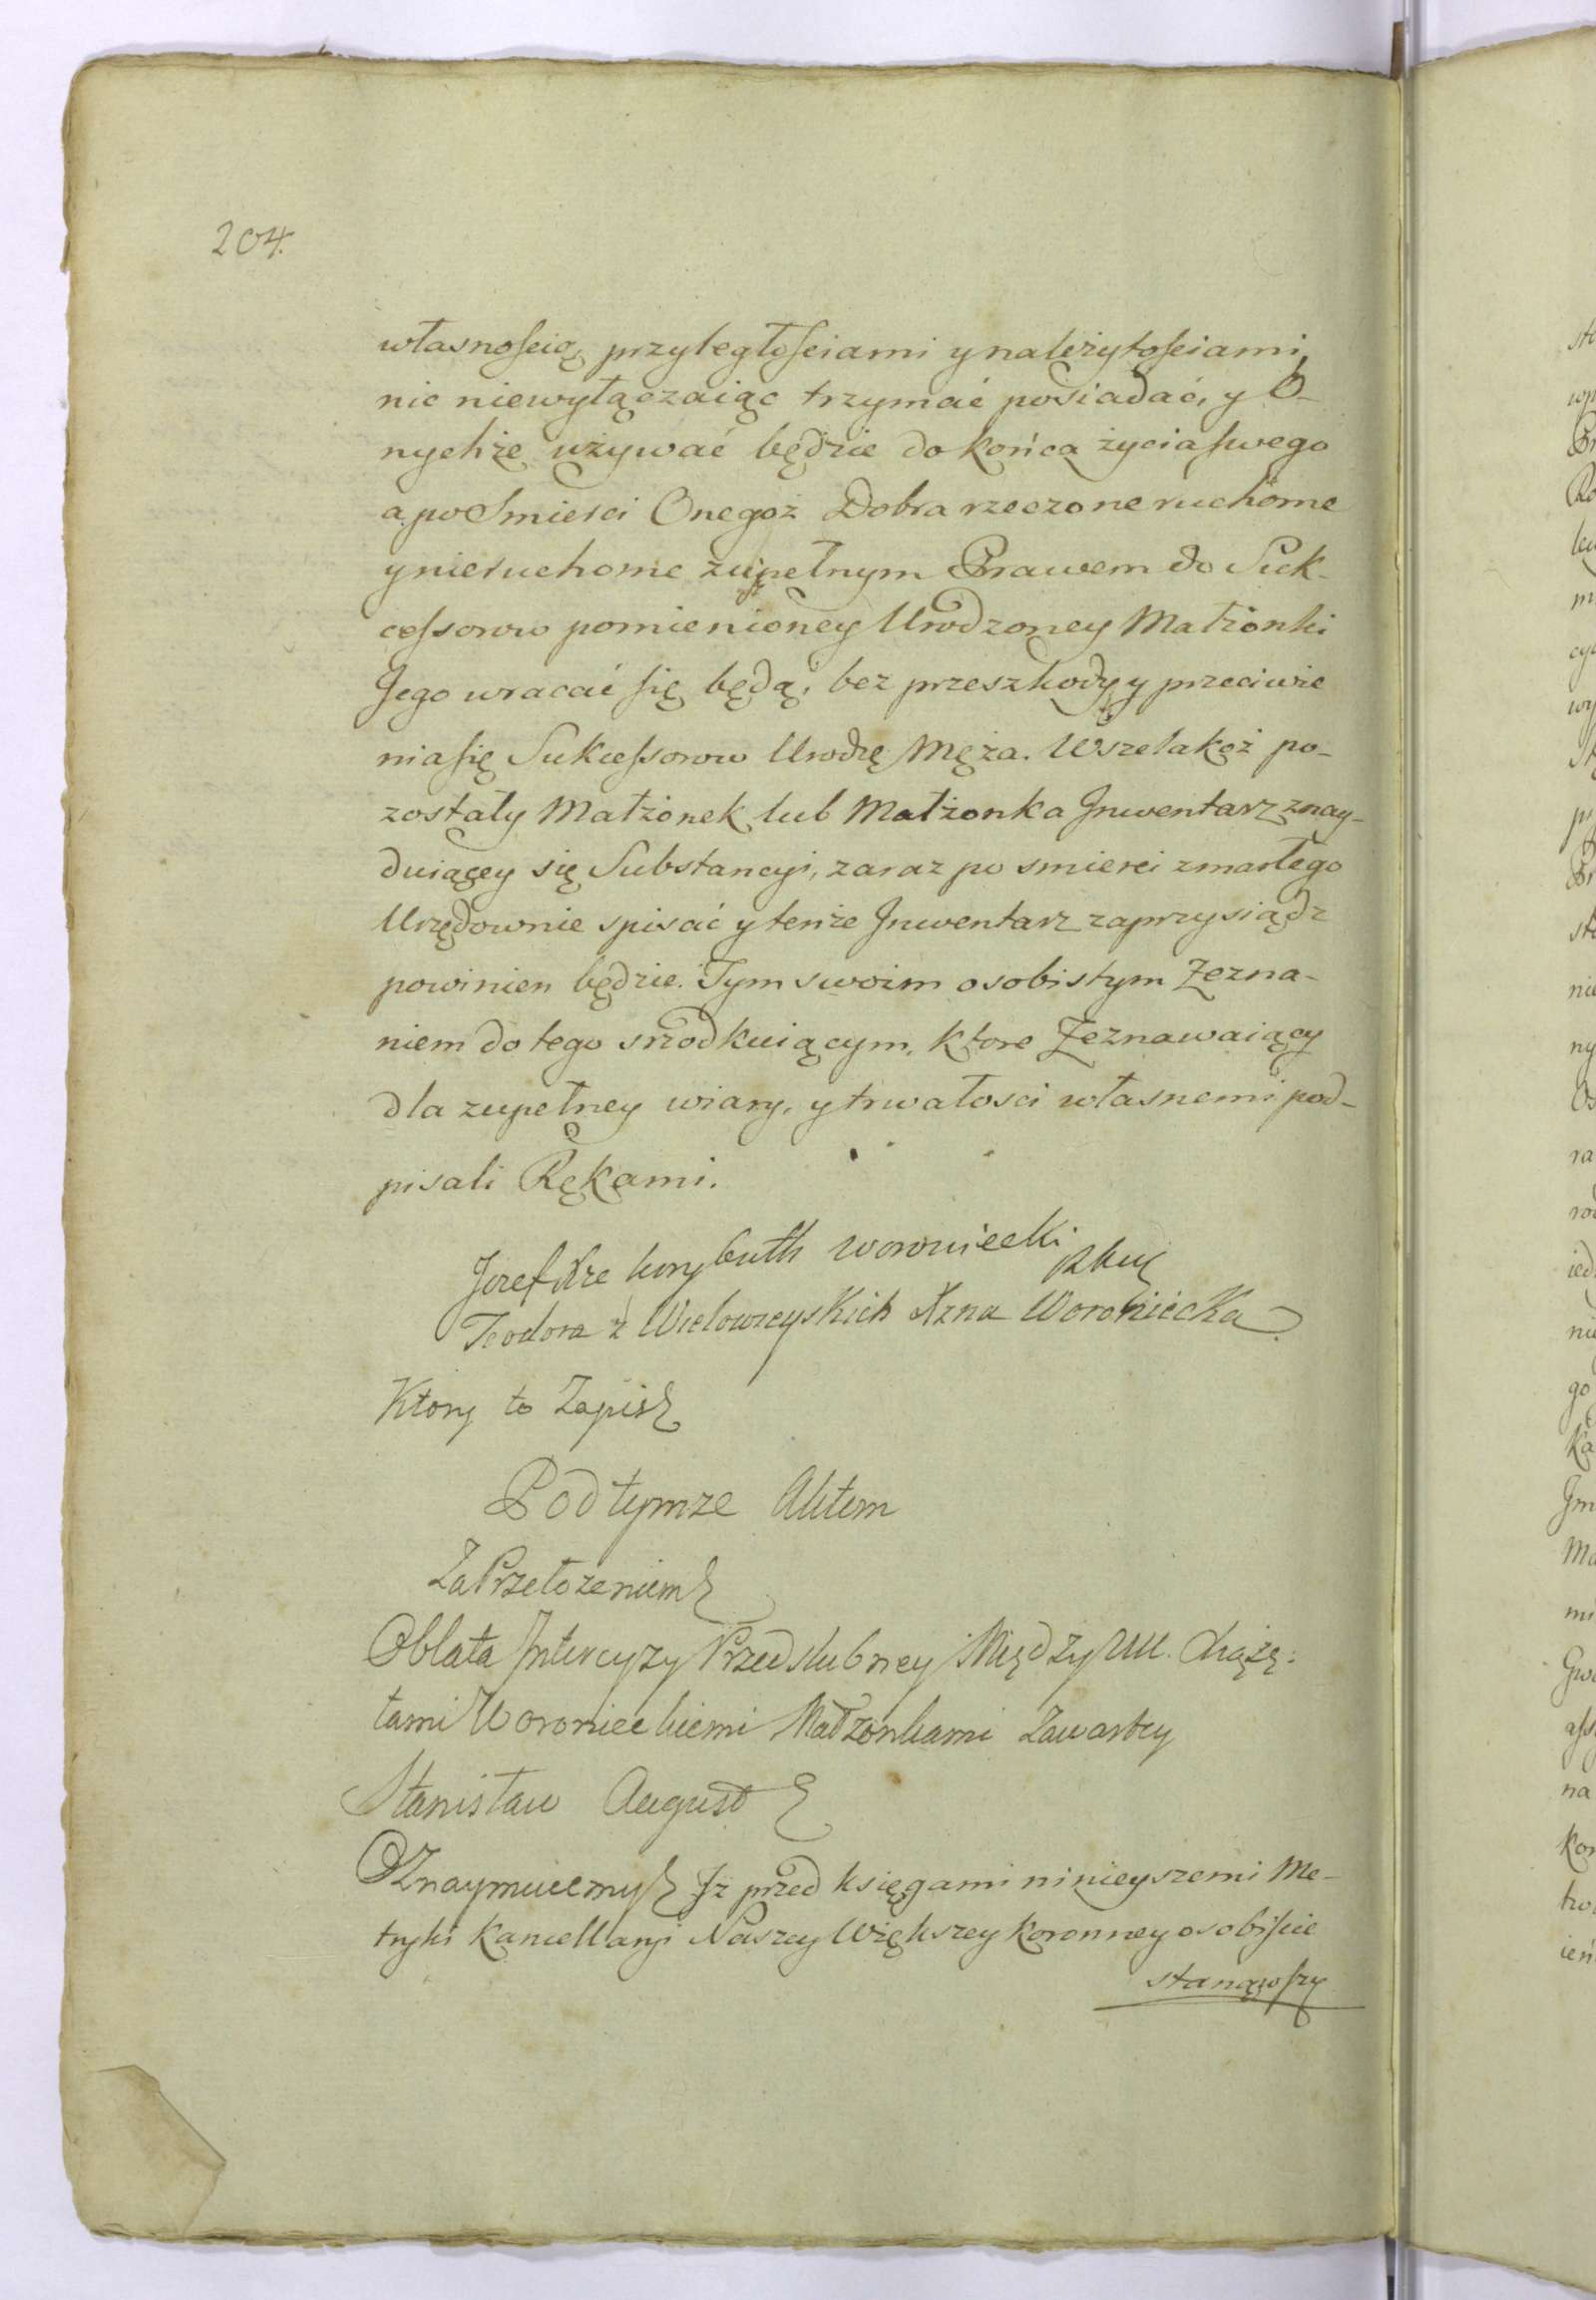 204.
własnoſcią, przyległoſciami y należytoſciami,
nic niewyłączaiąc trzymać posiadać, y O-
nychże używać będzie do końca życia ſwego
a po Smierci Onegoż Dobra rzeczone ruchome
y nieruchome zupełnym Prawem do Suk-
ceſsorow pomienioney Urodzoney Małżonki
Jego wracać ſię będą, bez przeszkody y przeciwie
nia ſię Sukceſsorow Urodzę Męża. Wszelakoż po-
zostały Małżonek lub Małżonka Jnwentarz znay-
duiącey się Substancyi, zaraz po smierci zmarłego
Urzędownie spisać y tenże Jnwentarz zaprzysiądz
powinien będzie. Tym swoim osobistym Zezna-
niem do tego srzodkuiącym, ktore Zeznawaiący
dla zupełney wiary, y trwałosci własnemi pod-
pisali Rękami.
Jozef Xze korybuth woroniecki
Teodora z Wielowieyskich Xzna Woroniecka
Ktory to Zapis
Pod tymze Aktem
Za Przełozeniem
Oblata Jntercyzy Przedslubney Między UU. Xiążę:
tami Woronieckiemi Małzonkami Zawartey
Stanisław August
Oznaymuiemy Jz przed księgami ninieyszemi Me-
tryki Kancellaryi Naszey Większey koronney osobiſcie
stanąwſzy